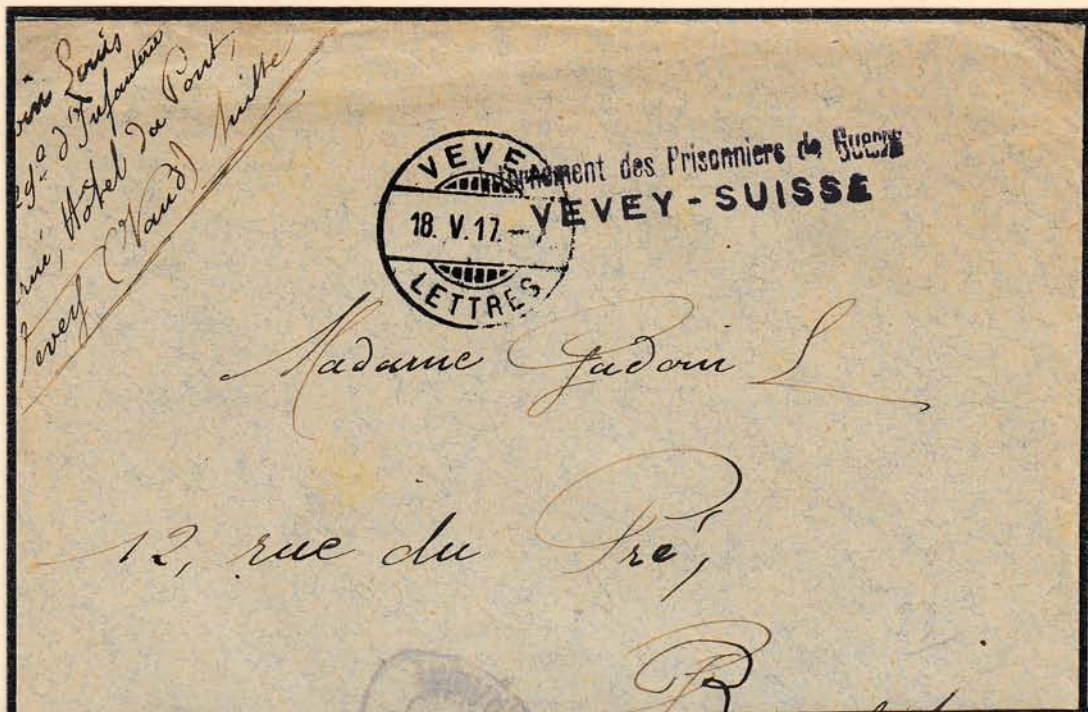 Louis
d'Infanterie
Hôtel du Pont,
Vevey (Vaud) Suisse
VEVEY
18. V. 17. –
LETTRES
des Prisonniers de Guerre
VEVEY - SUISSE
Madame Gadoin L
12, rue du Pré,